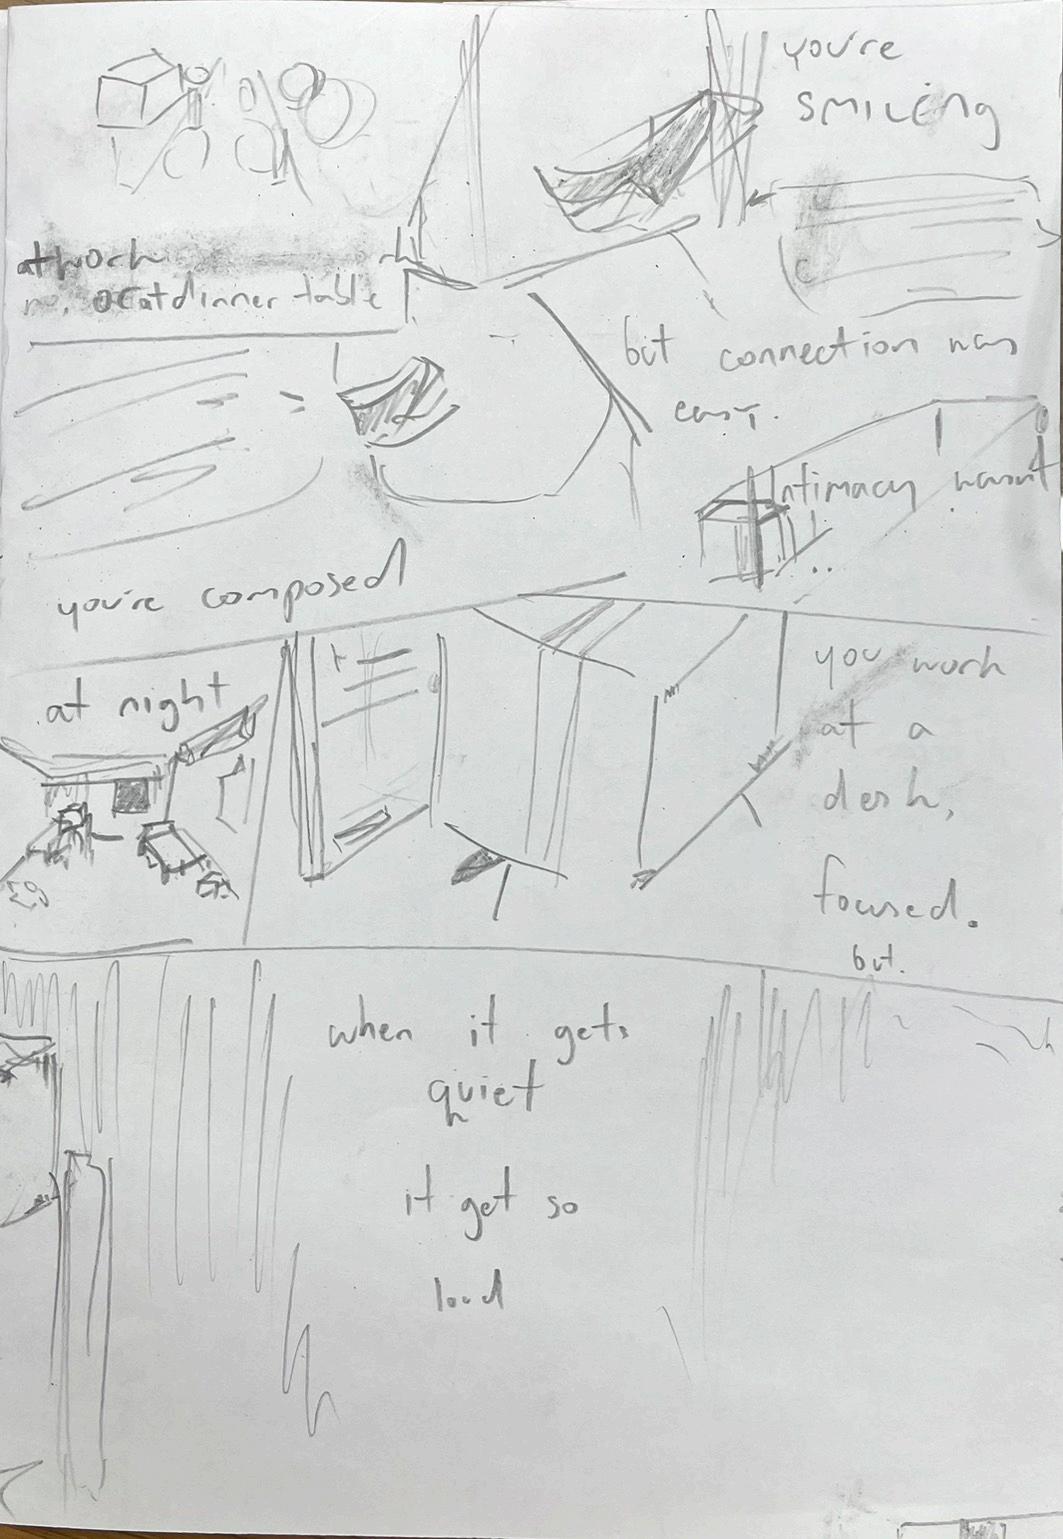 at work
or at dinner table
you're
SMILING
but connection was
easy.
Intimacy wasn't
you're composed
at night
you work
at a
desk,
focused.
but.
when it gets
quiet
it get so
loud